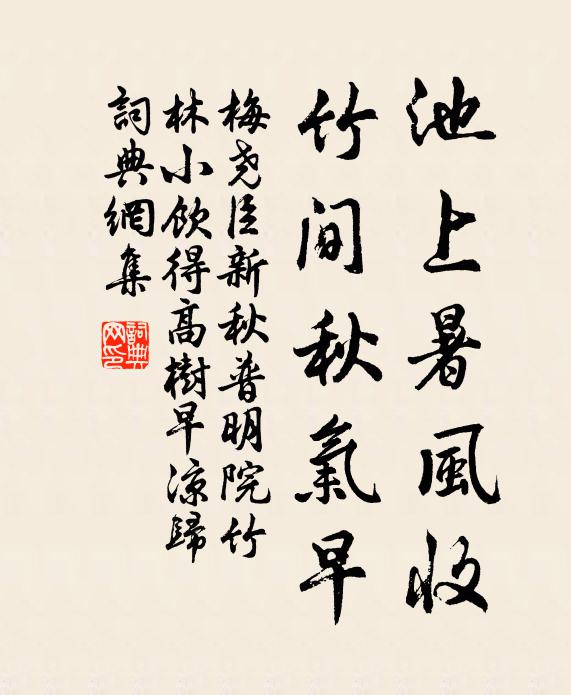 池上暑風收
竹间秋氣早
梅尧臣新秋普明院竹
林小飲得高樹早涼歸
詞典網集
詞典網印